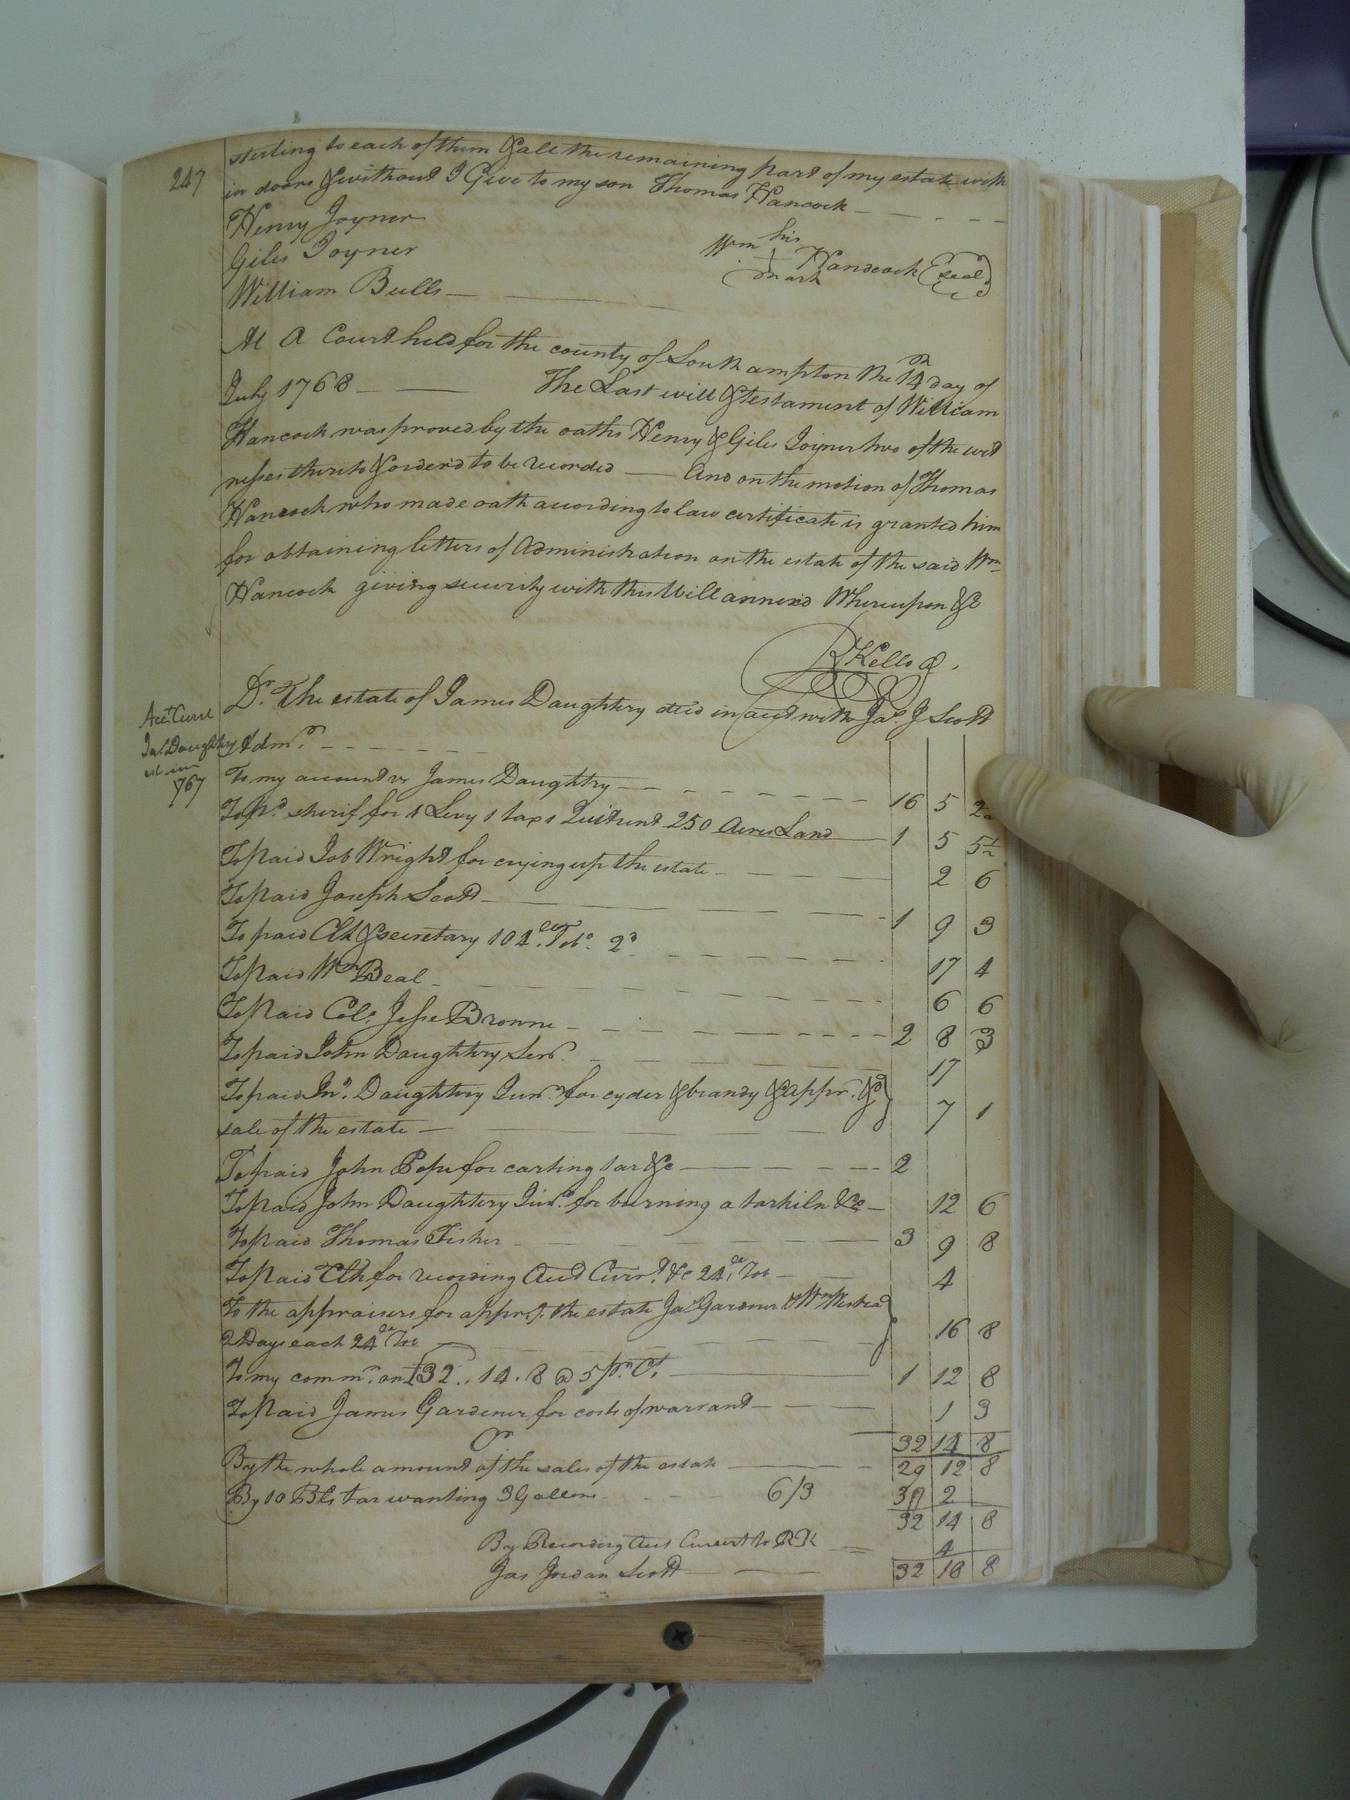 247
sterling to each of them & all the remaining part of my estate with
in doors & without I Give to my son Thomas Hancock
Henry Joyner
Giles Joyner
William Bulls
his
Wm Handcock (seal)
mark
At A Court held for the county of Southampton the 14th day of
July 1768 The Last will & testament of William
Hancock was proved by the oaths Henry & Giles Joyner two of the wit
nesses thereto & order'd to be recorded And on the motion of Thomas
Hancock who made oath according to law certificate is granted him
for obtaining letters of Administration on the estate of the said Wm
Hancock giving security with this Will annex'd Whereupon &c
R Kello
Acct. Curr
Jas. Daughtry
est in
1767
Dr. The estate of James Daughtery decd in acct with Jas. J Scott
Adm.r
To my account vs James Daughtry 16 5
To pd. sherif for 1 Levy 1 tax & Quitrent 250 Acres Land 1 5 5½
To paid Job Wright for crying up the estate 2 6
To paid Joseph Scott 1 9 3
To paid Clk & secretary 104 Tob. 2d 17 4
To paid Wm Beal 6 6
To paid Col. Jesse Browne 2 8 3
To paid John Daughtery Senr. 17
To paid Jno. Daughtery Junr. for cyder & brandy & appr. &
sale of the estate 7 1
To paid John Pope for carting tar &c 2
To paid John Daughtery Junr. for burning a tarkiln &c 12 6
To paid Thomas Fisher 3 9 8
To paid Clk for recording Acct Curr.t &c 24 Tob 4
To the appraisers for appr.g. the estate Jas Gardner & Wm
2 Days each 24 Tob 16 8
To my comm.n on £32..14.8 @ 5 pr. Ct. 1 12 8
To paid James Gardener for costs of warrant 1 3
32 14 8
Cr
By the whole amount of the sales of the estate 29 12 8
By 10 Bls tar wanting 3 Gallons 6/3 3 2
32 14 8
By Recording Acct Current to RK 4
Jas Jordan Scott 32 18 8